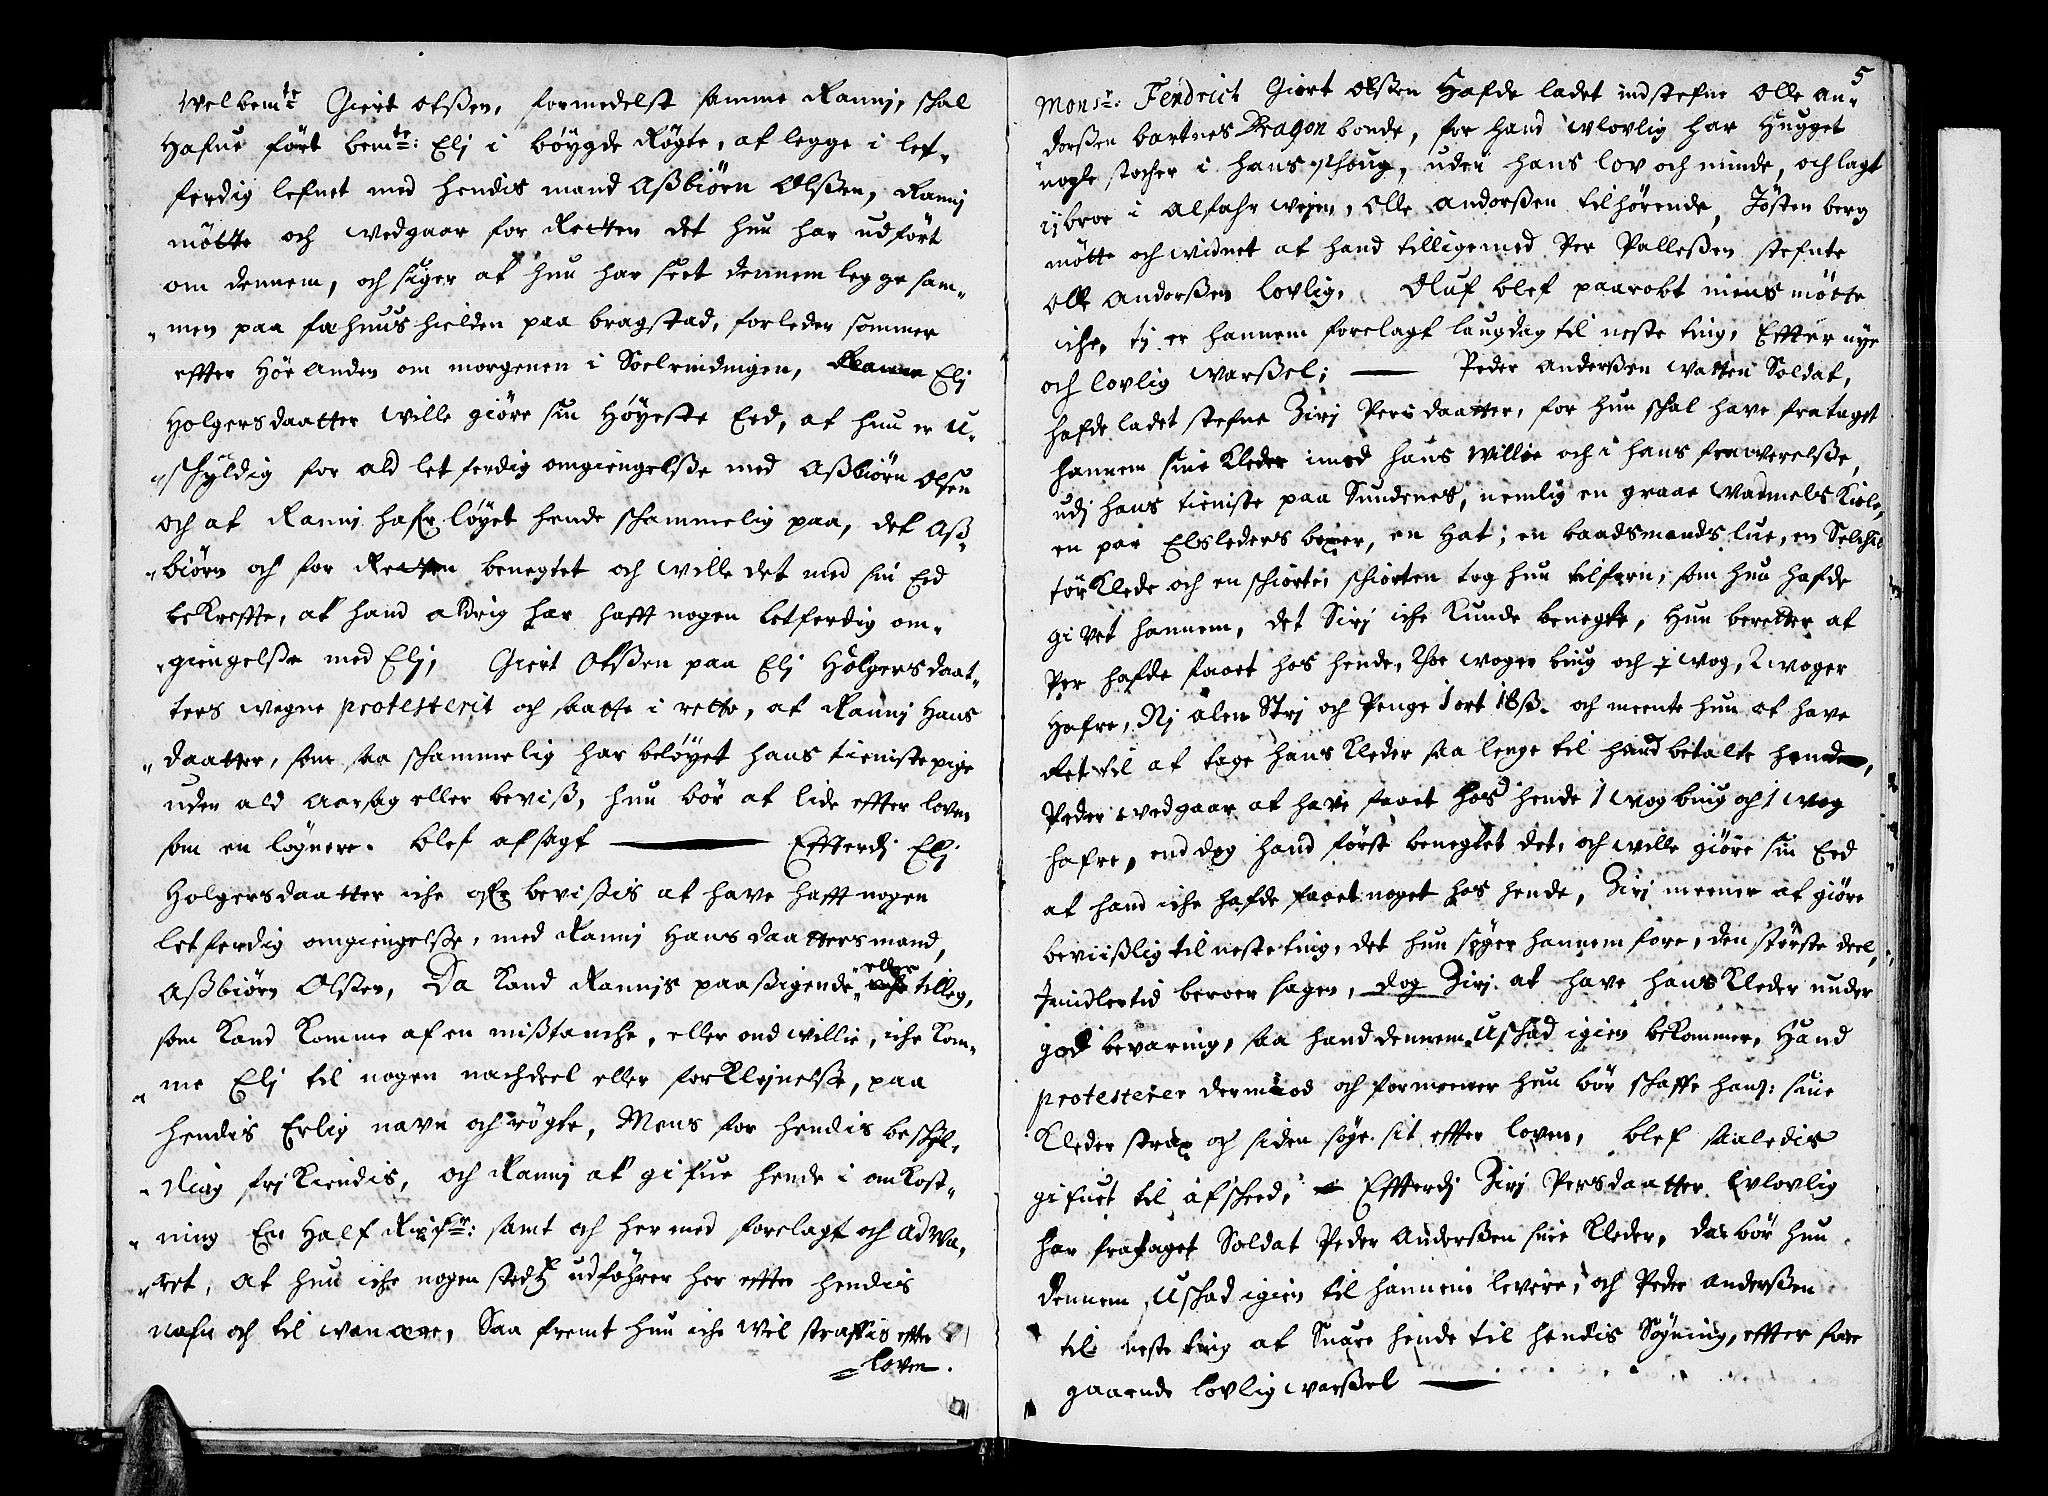 Welbemte Giert Olßen, formedelst samme Rannj, schal
Hafue ført bemte: Elj i bøygde Røgte, at legge i let„
ferdig lefnet med hendis mand Aßbiørn Olßen, Rannj
møtte och wedgaar for Retten det hun har udført
om dennem, och siger at hun har seet dennem legge sam„
„men paa fæhuus hielden paa bragstad, forleden sommer
effter Høe Anden om morgenen i Soelrindingen, Elj
Holgersdaatter wille giøre sin Høyeste Eed, at hun er u„
„schyldig for ald letferdig omgiengelße med Aßbiørn Olsen
och at Rannj hafr løyet hende schammelig paa, det Aß„
„biørn och for Retten benegtet och wille det med sin Eed
bekreffte, at hand aldrig har hafft nogen letferdig om„
„giengelße med Elj, Giert Olßen paa Elj Holgersdaat„
ters wegne protesterit och satte i rette, at Rannj Hans
„daatter, som saa schammelig har beløyet hans tieniste pige
uden ald Aarsag eller beviß, hun bør at lide effter loven
som en løgnere. blef afsagt ——— Effterdj Elj
Holgersdaatter iche er bevißis at have hafft nogen
letferdig omgiengelße, med Rannj Hansdaatters mand,
Aßbiørn Olßen, Da kand Rannjs paaßigende eller tilleg,
som kand komme af en mißtanche, eller ond willie, iche kom„
„me Elj til nogen nachdeel eller forklejnelße, paa
hendis Erlig navn och røgte, Mens for hendis beschyl„
„ding frj kiendis, och Rannj at gifue hende i omkost„
„ning En Half Rixdlr: samt och hermed forelagt och adva„
„ret, at hun iche nogen stedtz udføhrer her effter hendis
nafn och til wanære, Saa fremt hun iche wil straffis effter
loven.
5
Monsr: Fendrich Giert Olßen Hafde ladet indstefne Olle An„
„dorßen bartnes Dragon bonde, for hand wlovlig har Hugget
nogle stocher i hans schoug, uden hans lov och minde, och lagt
i broe i Alfahr wejen, Olle Andorßen tilhørende, Jøsten berg
møtte och widnet at hand tilligemed Per Palleßen stefnte
Olle Andorßen lovlig, Oluf blef paarobt mens møtte
iche, tj er hannem forelagt laugdag til neste ting, Effter nye
och lovlig warßel; —— Peder Anderßen Watten Soldat,
hafde ladet stefne Zirj Persdaatter, for hun schal have frataget
hannem sine kleder imod hans willie och i hans frawerelße,
udj hans tieniste paa Sundenes, nemlig en graae wadmels kiole,
en par Elsleders bøxer, en Hat; en baadsmands lue, en Selche
tørklede och en schiorte, schiorten tog hun tilforn, som hun hafde
givet hannem, det Sirj iche kunde benegte, Hun beretter at
Per hafde faaet hos hende, Thoe woger bing och 1 wog, 2 woger
Hafre, Nj alen Strj och Penge 1 ort 18 ß. och meente hun at have
Ret til at tage hans kleder saa lenge til hand betalte hende,
Peder wedgaar at have faaet hos hende 1 wog bing och 1 wog
hafre, end dog hand først benegtet det, och wille giøre sin Eed
at hand iche hafde faaet noget hos hende, Zirj meener at giøre
beviißlig til neste ting, det hun søger hannem fore, den største deel,
Jmidlertid beroer sagen, dog Zirj at have hans kleder under
god bevaring, saa hand dennem uschad igien bekommer, Hand
protesterer dermod och formeener hun bør schaffe hanß: sine
kleder strax och siden søge sit effter loven, blef saaledis
gifuet til afscheed, Effterdj Zirj Persdaatter Wlovlig
har frataget Soldat Peder Anderßen sine kleder, da bør hun
dennem uschad igien til hannem levere, och Peder Anderßen
til neste ting at Suare hende til hendis Søgning, effter fore
gaaende lovlig warßel ——